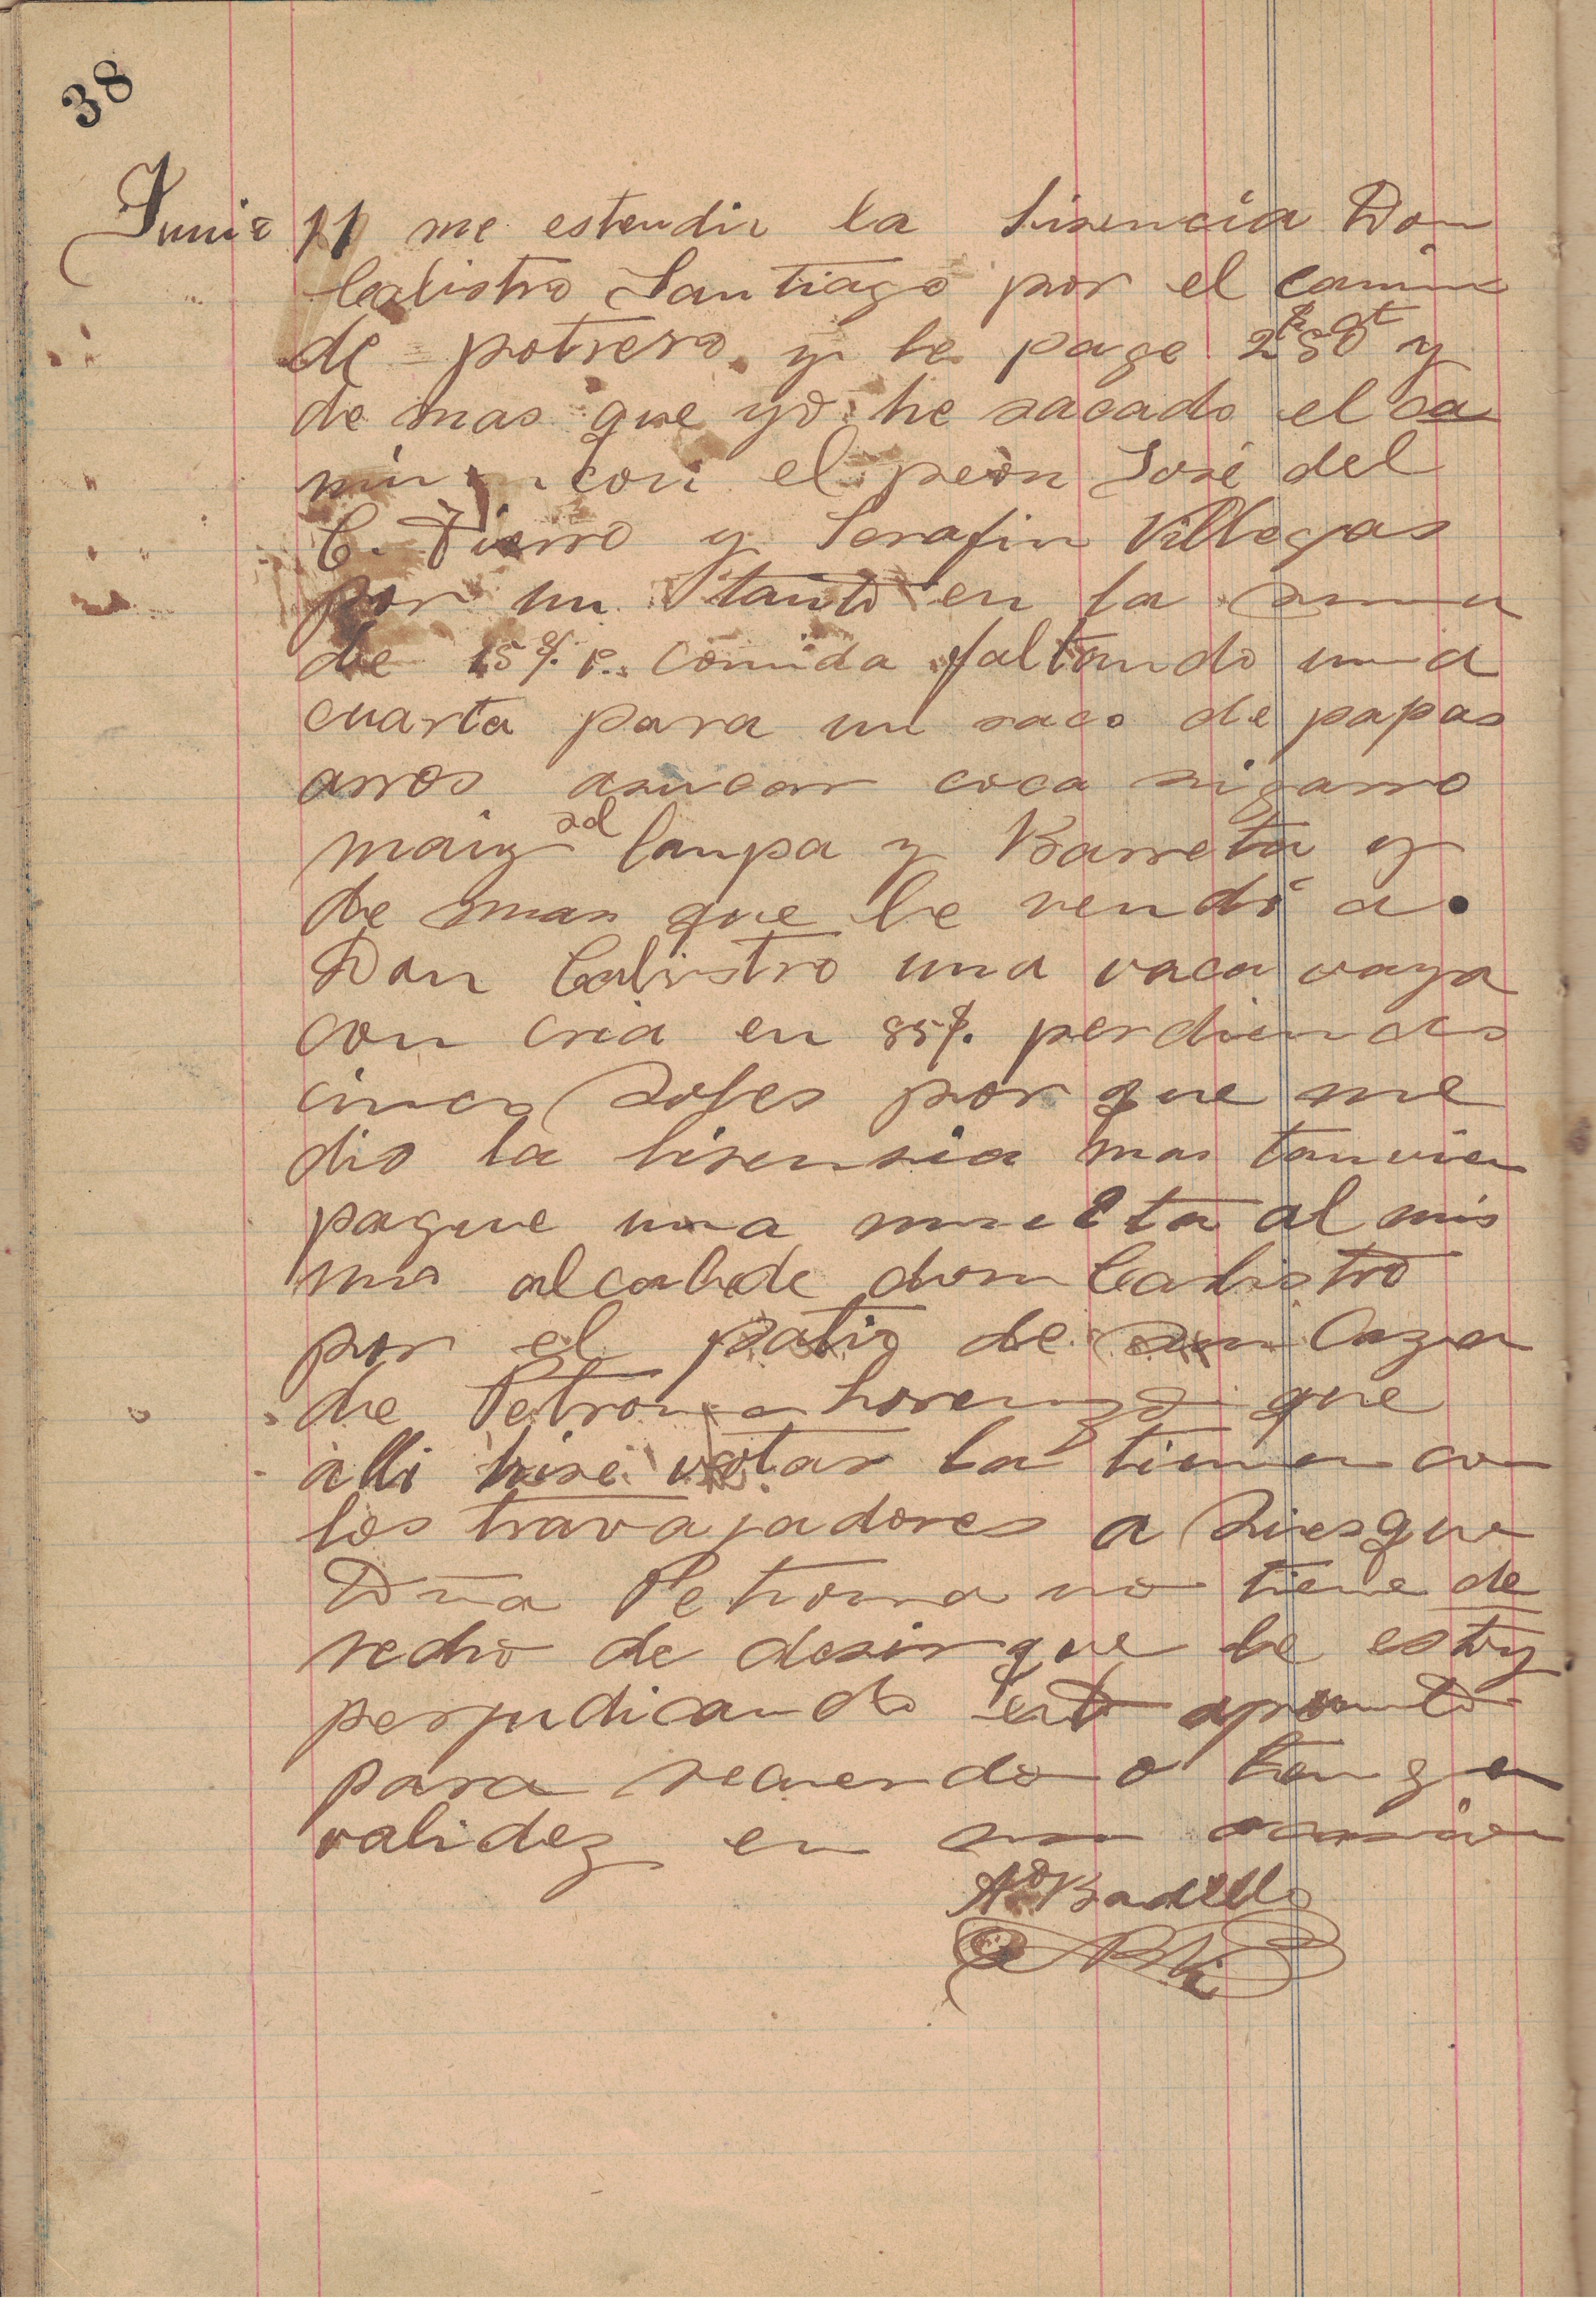 38
Junio 11 me estendio la lisencia Don
Calistro Santiago por el camino
de potrero y le page 2 50 y
de mas que yo he sacado el ca
mino con el peon José del
C. Fierro y Serafin Villegas
por un tanto en la suma
de 15 comida faltando una
cuarta para un saco de papas
arros asucar coca sigarro
maiz sal lampa y Barreta y
de mas que le vendi a
Don Calistro una vaca vaya
con cria en 85 perdiendo
cinco soles por que me
dio la lisensia mas tanvien
pague una multa al mis
mo alcalde don Calistro
por el patio de su Caza
de Petrona Lorenzo que
alli hise votar la tierra con
los travajadores a
Dña Petrona no tiene de
recho de desir que le estoy
perjudicando esto apunto
para recuerdo o tenga
validez en su ocasion
Badillo